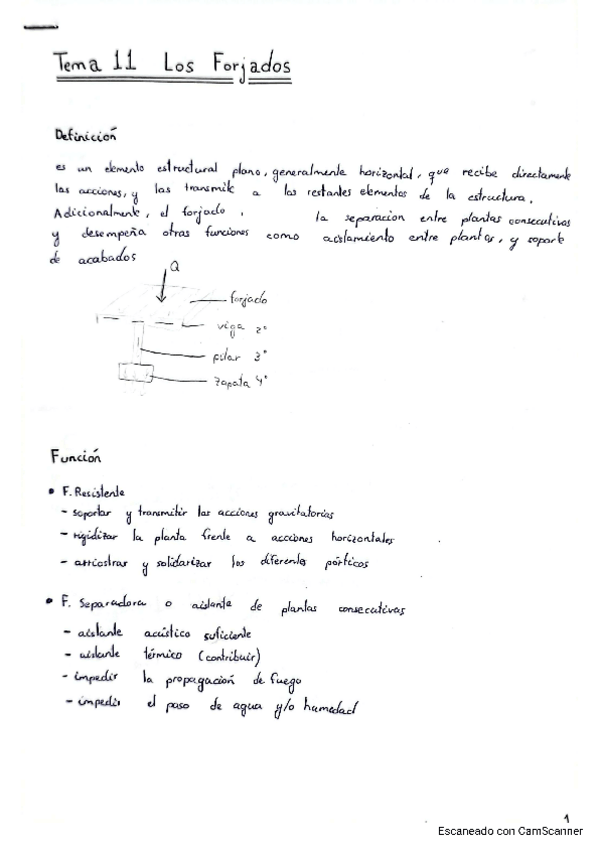 Tema 11 Los Forjados
Definición
es un elemento estructural plano, generalmente horizontal, que recibe directamente
las acciones, y las transmite a los restantes elementos de la estructura.
Adicionalmente, el forjado, la separacion entre plantas consecutivas
y desempeña otras funciones como aislamiento entre plantas, y soporte
de acabados
Q
forjado
viga 2º
pilar 3º
zapata 4º
Función
• F. Resistente
- soportar y transmitir las acciones gravitatorias
- rigidizar la planta frente a acciones horizontales
- arriostrar y solidarizar los diferentes pórticos
• F. Separadora o aislante de plantas consecutivas
- aislante acústico suficiente
- aislante térmico (contribuir)
- impedir la propagación de fuego
- impedir el paso de agua y/o humedad
1
Escaneado con CamScanner